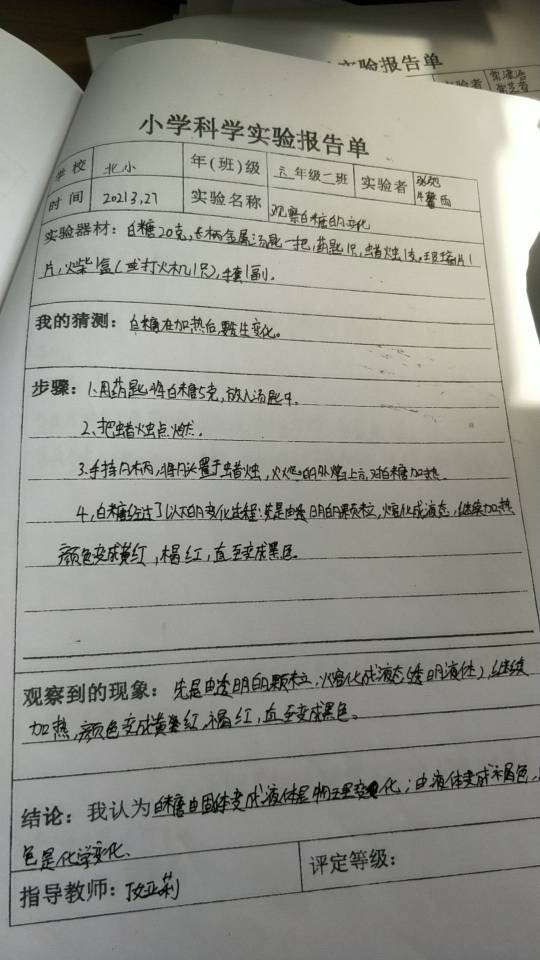 实验报告单
小学科学实验报告单
学校 北小 年(班)级 六年级二班 实验者
时间 2021 3,27 实验名称 观察白糖的变化
实验器材：白糖20克,长柄金属汤匙一把,药匙1只,蜡烛1支,玻璃片1
片,火柴1盒(或打火机1只),手套1副.
我的猜测：白糖在加热后,发生变化。
步骤：1.用药匙将白糖5克,放入汤匙中.
2、把蜡烛点燃.
3.手持勺柄,将勺头置于蜡烛,火焰的外焰上方,对白糖加热.
4,白糖经过了以下的变化过程:先是由透明的颗粒,熔化成液态,继续加热
颜色变成黄红,褐红,直至变成黑色
观察到的现象：先是由透明的颗粒,熔化成液态(透明液体),继续
加热,颜色变成黄红,褐红,直至变成黑色。
结论：我认为白糖由固体变成液体是物理变化；由液体变成褐色,
色是化学变化、
指导教师： 评定等级：